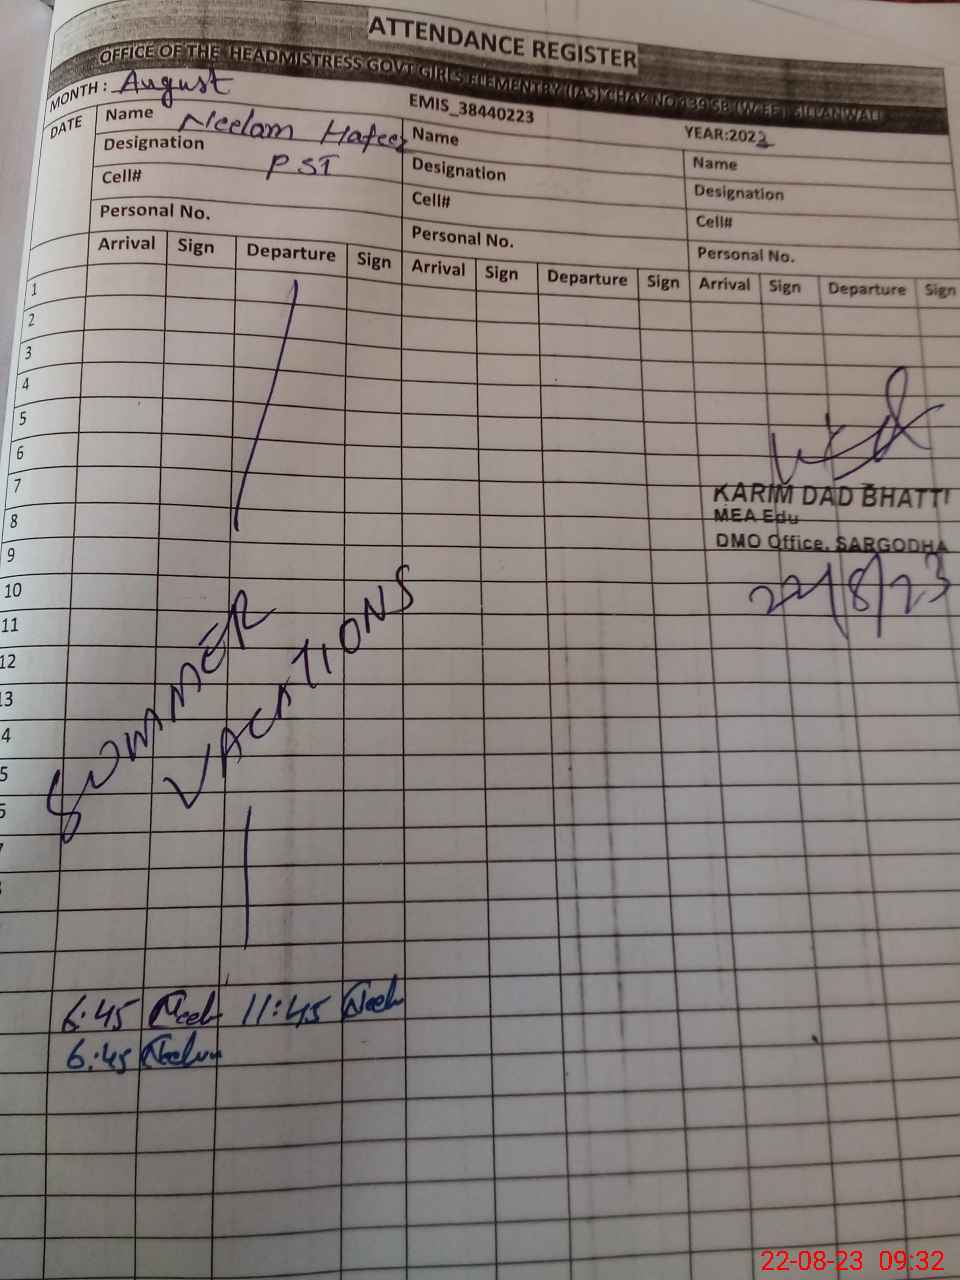 ATTENDANCE REGISTER
OFFICE OF THE HEADMISTRESS GOVT GIRLS ELEMENTRY (IAS) CHAK NO 139 SB (W.EF) SILLANWALI
MONTH : August EMIS_38440223 YEAR:2023
DATE Name Neelam Hafeez Name Name
Designation PST Designation Designation
Cell# Cell# Cell#
Personal No. Personal No. Personal No.
Arrival Sign Departure Sign Arrival Sign Departure Sign Arrival Sign Departure Sign
1
2
3
4
5
6
7
KARIM DAD BHATTI
MEA Edu
8
DMO Office, SARGODHA
9
10
22/8/23
11
12
13
4
5
5
SUMMER
VACATIONS
6:45 11:45
6:45 Neelam
22-08-23 09:32